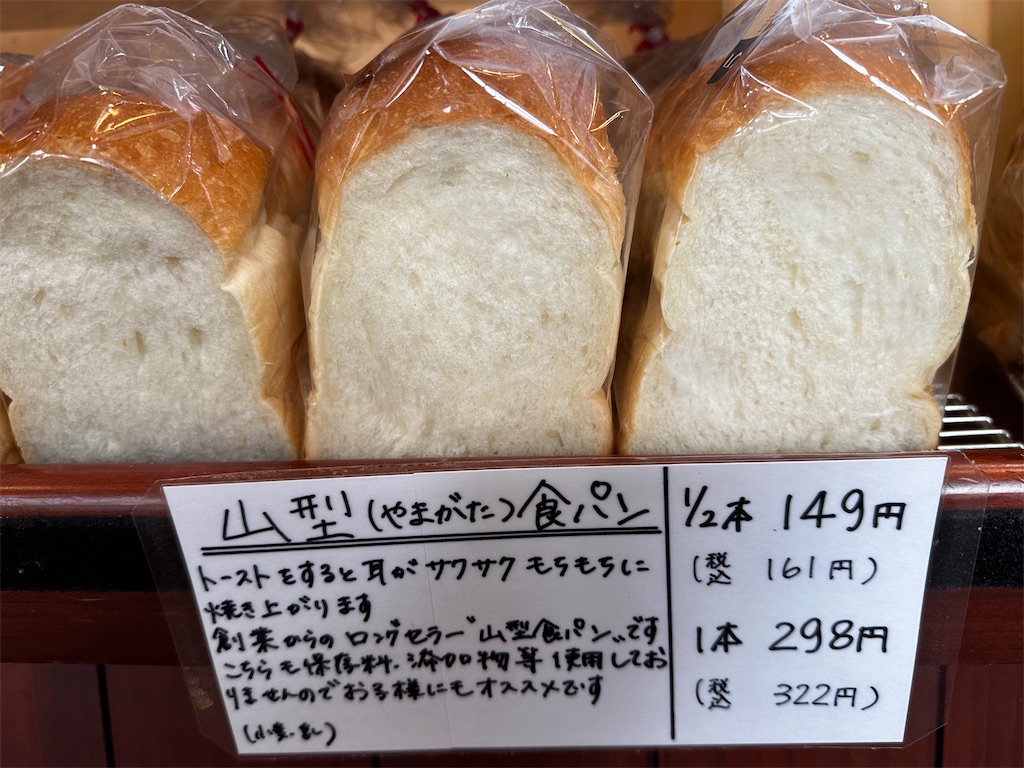 山型(やまがた)食パン
トーストをすると耳がサクサクもちもちに
焼き上がります
創業からのロングセラー"山型食パン"です
こちらも保存料、添加物等使用してお
りませんのでお子様にもオススメです
(小麦・乳)
1/2本 149円
(税込 161円)
1本 298円
(税込 322円)